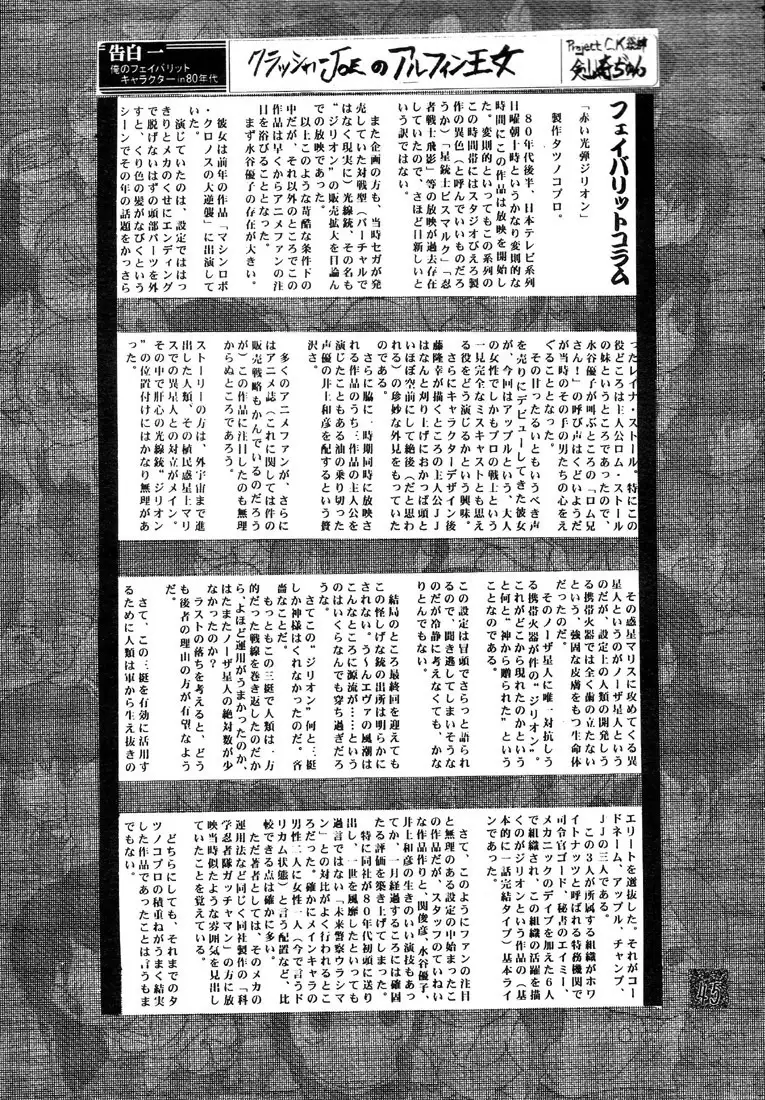 告白一
俺のフェイバリット
キャラクターin80年代
クラッシャーJOEのアルフィン王女
Project C.K.
フェイバリットコラム
「赤い光弾ジリオン」
製作タツノコプロ。
80年代後半、日本テレビ系列
日曜朝十時というかなり変則的な
時間にこの作品は放映を開始し
た。変則的といってもこの系列の
この時間帯にはスタジオぴえろ製
作の異色(と呼んでいいものだろ
うか)「星銃士ビスマルク」「忍
者戦士飛影」等の放映が過去存在
していたので、さほど目新しいと
いう訳ではない。
また企画の方も、当時セガが発
売していた対戦型(バーチャルで
はなく現実に)光線銃、その名も
“ジリオン”の販売拡大を目論ん
での放映であった。
以上このような苛酷な条件下の
中だが、それ以外のところでこの
作品は早くからアニメファンの注
目を浴びることとなった。
まず水谷優子の存在が大きい。
彼女は前年の作品「マシンロボ
・クロノスの大逆襲」に出演して
いた。
演じていたのは、設定でははっ
きりとメカのくせにエンディング
で脱げないはずの頭部パーツを外
すと、くり色の髪がなびくという
シーンでその年の話題をかっさら
ったレイナ・ストール。特にこの
役どころは主人公ロム・ストール
の妹というところであったので、
水谷優子が叫ぶところの「ロム兄
さん!」の呼び声はくどいようだ
が当時のその手の男たちの心をえ
ぐることとなった。
その甘ったるいともいうべき声
を売りにデビューしてきた彼女
が、今回はアップルという、大人
の女性でしかもプロの戦士という
一見完全なミスキャストとも思え
る役をどう演じるかという興味。
さらにキャラクターデザイン後
藤隆幸が描くところの主人公JJ
はなんと刈り上げにおかっぱ頭と
いほぼ空前にして絶後(だと思わ
れる)の珍妙な外見をもっていた
のである。
さらに脇に一時期同時に放映さ
れる作品のうち三作品の主人公を
演じたこともある油の乗り切った
声優の井上和彦を配するという贅
沢さ。
多くのアニメファンが、さらに
はアニメ誌(これに関しては件の
販売戦略もかんでいるのだろう
が)この作品に注目したのも無理
からぬところであろう。
ストーリーの方は、外宇宙まで進
出した人類、その植民惑星マリ
スでの異星人との対立がメイン。
その中で肝心の光線銃“ジリオン
”の位置付けにはかなり無理があ
った。
その惑星マリスに攻めてくる異
星人というのがノーザ星人という
のだが、設定上の人類の開発しう
る携帯火器では全く歯の立たない
という、強固な皮膚をもつ生命体
だったのだ。
そのノーザ星人に唯一対抗しう
る携帯火器が件の“ジリオン”。
これがどこから現れたのかという
と何と“神から贈られた”という
ことなのである。
この設定は冒頭でさらっと語られ
るので、聞き逃してしまいそうな
のだが冷静に考えなくても、かな
りとんでもない。
結局のところ最終回を迎えても
この怪しげな銃の出所は明らかに
されない。う〜んエヴァの風潮は
こんなところに源流が…‥という
のはいくらなんでも穿ち過ぎだろ
うな。
さてこの“ジリオン”何と三挺
しか神様はくれなかったのだ。吝
嗇なことだ。
もっともこの三挺で人類は一方
的だった戦線を巻き返したのだか
ら、よほど運用がうまかったのか、
はたまたノーザ星人の絶対数が少
なかったのか?
ラストの落ちを考えると、どう
も後者の理由の方が有望なよう
だ。
さて、この三挺を有効に活用す
るために人類は軍から生え抜きの
エリートを選抜した。それがコー
ドネーム、アップル、チャンプ、
JJの三人である。
この3人が所属する組織がホワ
イトナッツと呼ばれる特務機関で
司令官ゴード、秘書のエイミー、
メカニックのデイブを加えた6人
で組織され、この組織の活躍を描
くのがジリオンという作品の(基
本的に一話完結タイプ)基本ライ
ンであった。
さて、このようにファンの注目
と無理のある設定の中始まったこ
の作品だが、スタッフのていねい
な作品作りと、関俊彦、水谷優子、
井上和彦の生きのいい演技もあっ
てか、一月経過するころには確固
たる評価を築き上げてしまった。
特に同社が80年代初頭に送り
出し、一世を風靡したといっても
過言ではない「未来警察ウラシマ
ン」との対比がよく行われるとこ
ろだった。確かにメインキャラの
男性二人に女性一人(今で言うド
リカム状態)と言う配置など、比
較できる点は確かに多い。
ただ著者としては、そのメカの
運用法など同じく同社製作の「科
学忍者隊ガッチャマン」の方に放
映当時似たような雰囲気を見出し
ていたことを覚えている。
どちらにしても、それまでのタ
ツノコプロの積重ねがうまく結実
した作品であったことは言うもま
でもない。
45